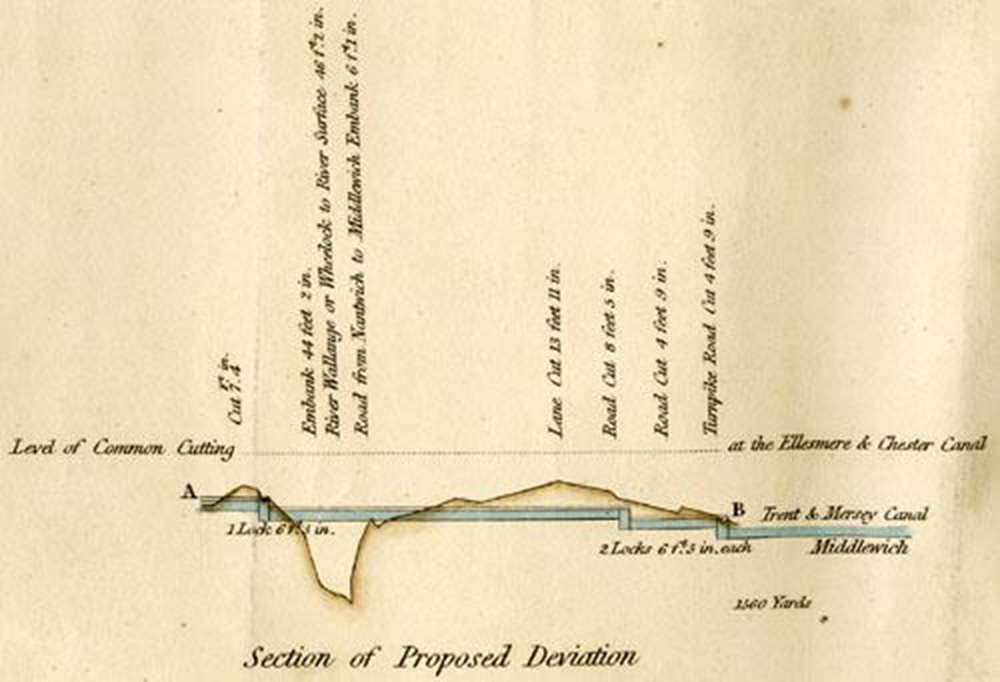 Cut 7.4
Ft. in.
Embank 44 feet 2 in.
River Wallange or Wheelock to River Surface 46 ft. 2 in.
Road from Nantwich to Middlewich Embank 6 ft. 1 in.
Lane Cut 13 feet 11 in.
Road Cut 8 feet 5 in.
Road Cut 4 feet 9 in.
Turnpike Road Cut 4 feet 9 in.
Level of Common Cutting at the Ellesmere & Chester Canal
A
B Trent & Mersey Canal
1 Lock 6 ft. in.
2 Locks 6 ft. 5 in. each
Middlewich
1560 Yards
Section of Proposed Deviation